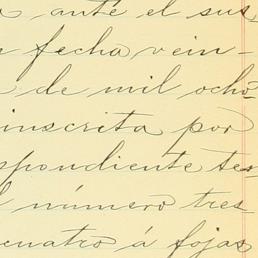 a ante el sus-
n fecha vein-
a de mil ocho-
inscrita por
spondiente tes-
l número tres
cuatro á fojas